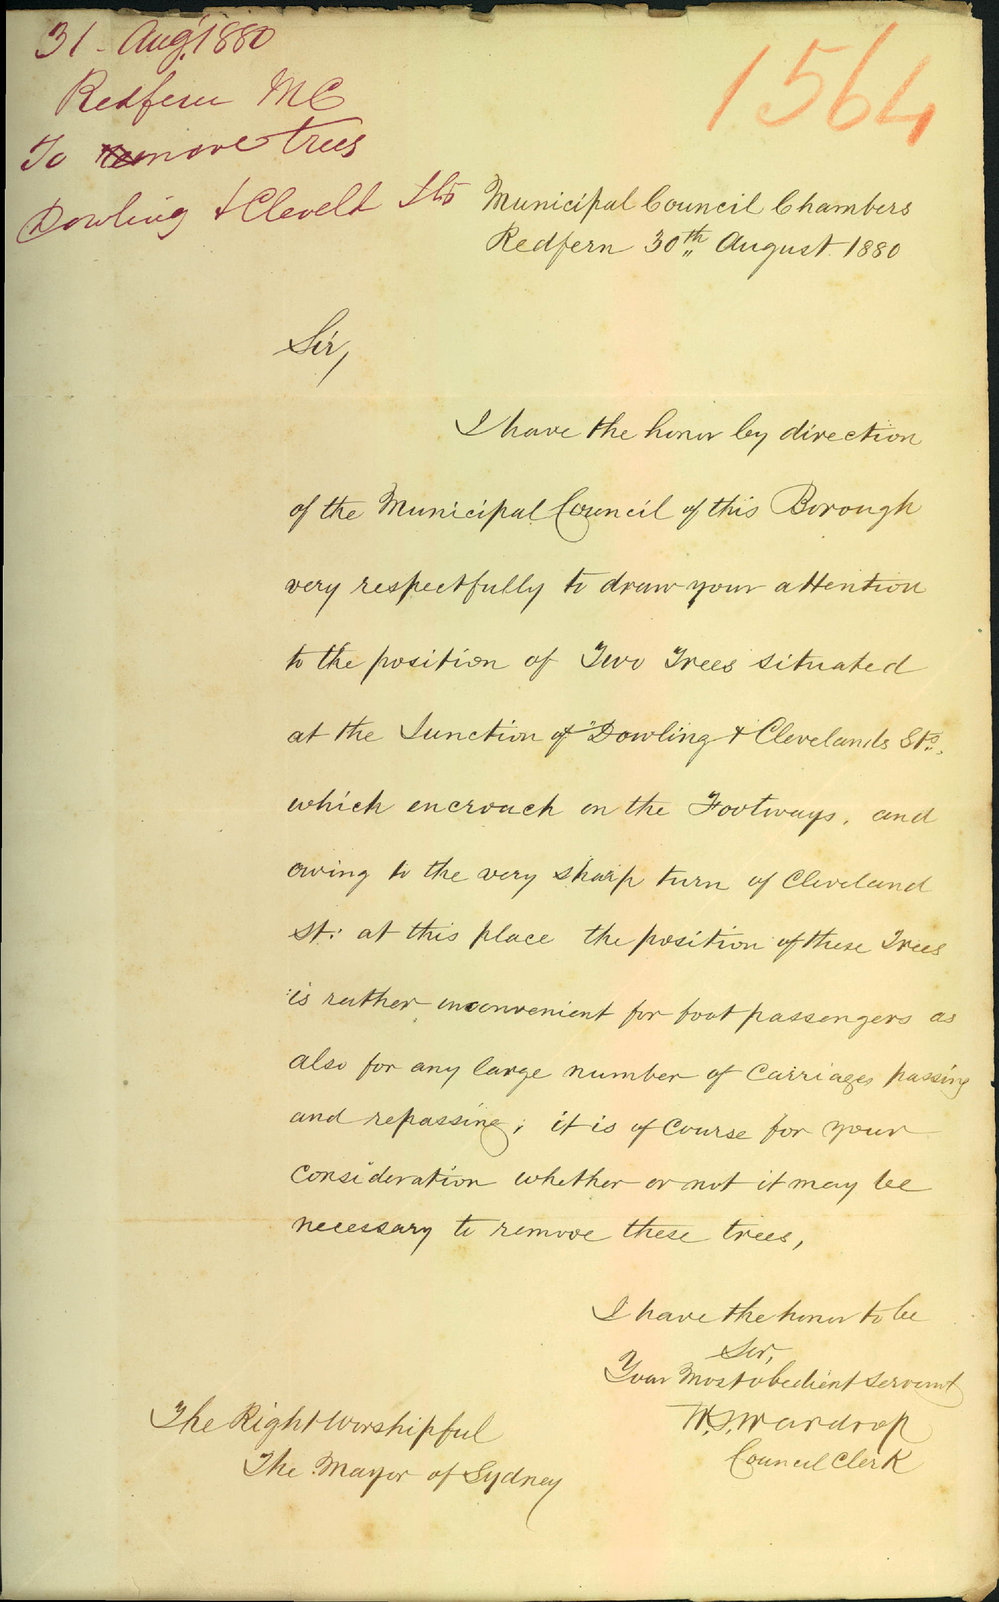 31 - Aug. 1880
Redfern MC
To remove trees
Dowling & Cleveld Sts
1564
Municipal Council Chambers
Redfern 30th August 1880
Sir,
I have the honor by direction
of the Municipal Council of this Borough
very respectfully to draw your attention
to the position of Two Trees situated
at the Junction of Dowling & Clevelands Sts.,
which encroach on the Footways, and
owing to the very sharp turn of Cleveland
St: at this place the position of these Trees
is rather inconvenient for foot passengers as
also for any large number of Carriages passing
and repassing; it is of Course for your
Consideration whether or not it may be
necessary to remove these trees,
I have the honor to be
Sir,
Your Most obedient servant
Wardrop
Council Clerk
The Right Worshipful
The Mayor of Sydney